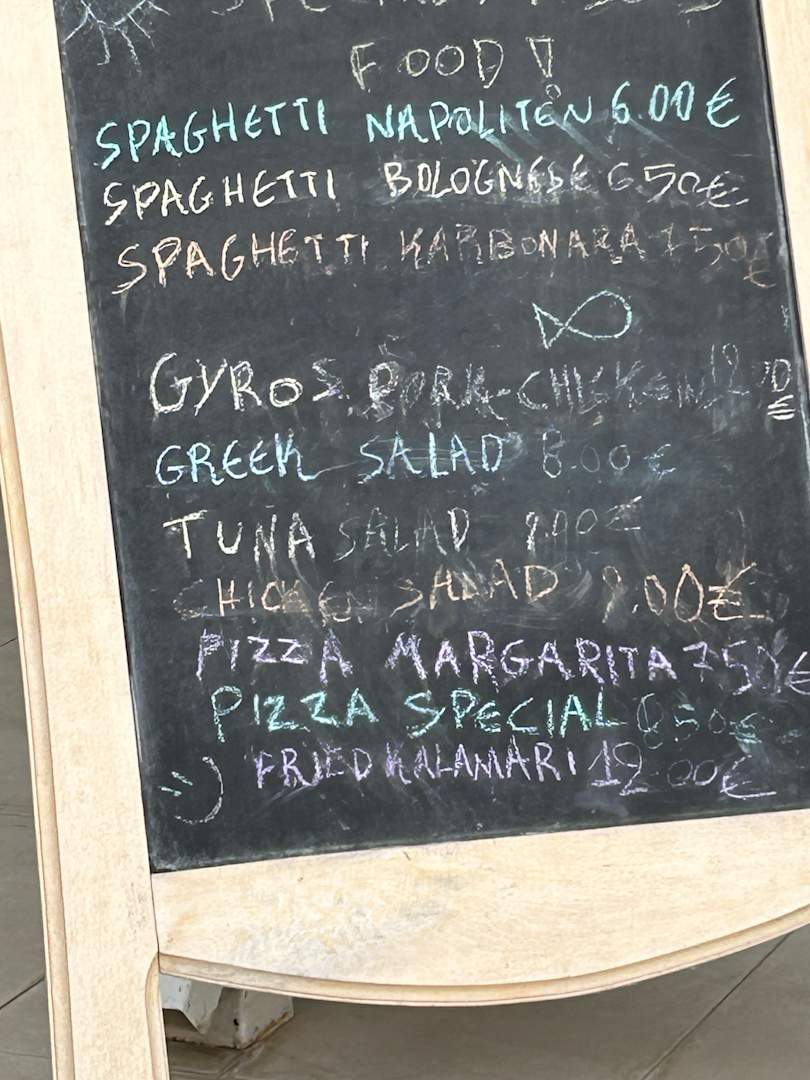 FOOD!
SPAGHETTI NAPOLITEN 6.00 €
SPAGHETTI BOLOGNESE 6 50 €
SPAGHETTI KARBONARA 750€
GYROS PORK-CHICKEN
GREEK SALAD 8.00 €
TUNA SALAD
CHICKEN SALAD 9.00€
PIZZA MARGARITA 750€
PIZZA SPECIAL
FRIED KALAMARI 12 00€